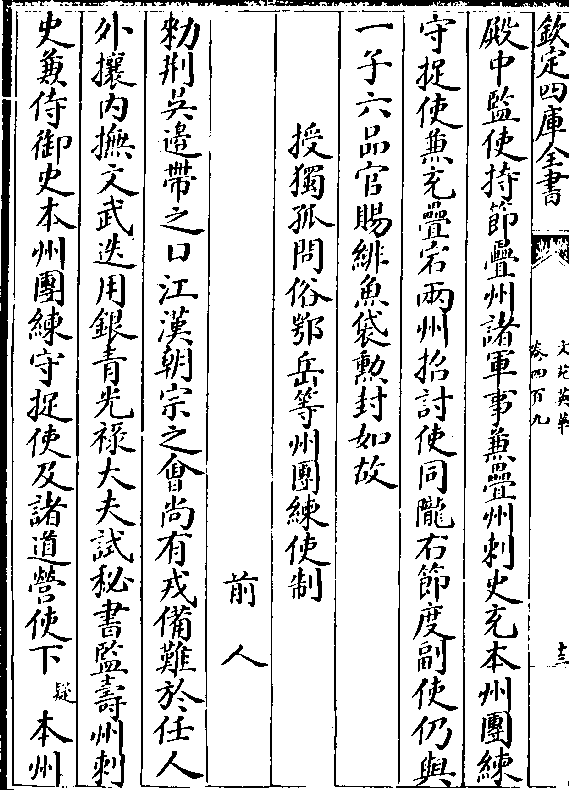 欽定四庫全書
文苑英華
卷四百九
十三
殿中監使持節疊州諸軍事兼疊州刺史充本州團練
守捉使兼充疊宕兩州招討使同隴右節度副使仍與
一子六品官賜緋魚袋勲封如故
授獨孤問俗鄂岳等州團練使制
前人
勑荆吳邉帶之口江漢朝宗之會尚有戎備難於任人
外攘内撫文武迭用銀青光祿大夫試秘書監壽州刺
史兼侍御史本州團練守捉使及諸道營使下疑本州